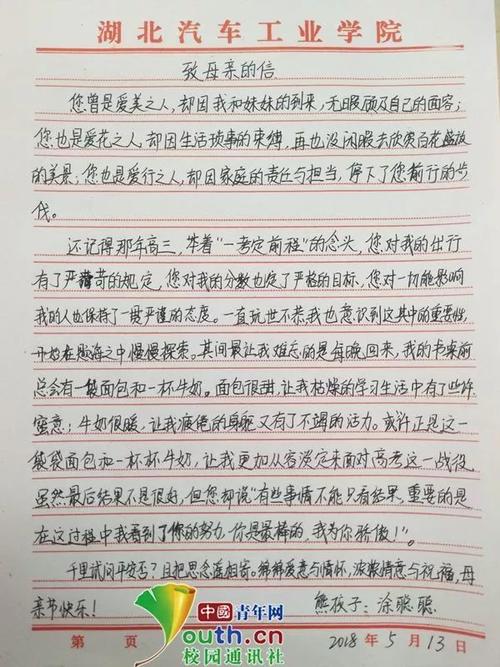 湖北汽车工业学院
致母亲的信
您曾是爱美之人,却因我和妹妹的到来,无暇顾及自己的面容;
您也是爱花之人,却因生活琐事的束缚,再也没闲暇去欣赏百花盛放
的美景;您也是爱行之人,却因家庭的责任与担当,停下了您前行的步
伐。
还记得那年高三,牟着“一考定前程”的念头,您对我的出行
有了严苛的规定,您对我的分数也定了严格的目标,您对一切能影响
我的人也保持了一贯严谨的态度。一直玩世不恭我也意识到这其中的重要性,
开始在题海之中慢慢探索。其间最让我难忘的是每晚回来,我的书桌前
总会有一袋面包和一杯牛奶。面包很甜,让我枯燥的学习生活中有了些许
蜜意;牛奶很暖,让我疲倦的身躯又有了不竭的活力。或许正是这一
袋袋面包和一杯杯牛奶,让我更加从容淡定来面对高考这一战役
虽然最后结果不是很好,但您却说“有些事情不能只看结果,重要的是
在这过程中我看到了你的努力,你是最棒的,我为你骄傲!”。
千里试问平安否?且把思念遥相寄。绵绵爱意与情怀,浓浓情意与祝福,母
亲节快乐!
熊孩子:涂骏聪
第 页
2018年5月13日
中國青年网
Youth.cn
校园通讯社